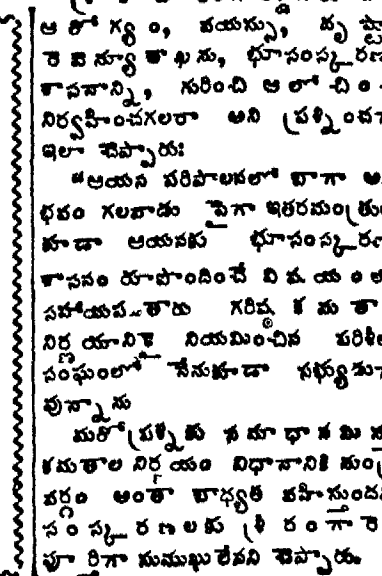 ఆరోగ్యం, వయస్సు, దృష్ట్యా
రెవెన్యూశాఖను, భూసంస్కరణ
శాసనాన్ని, గురించి ఆలోచించ
నిర్వహించగలరా అని ప్రశ్నించగా
ఇలా చెప్పారుః
"ఆయన పరిపాలనలో బాగా అ
భవం గలవాడు పైగా ఇతరమంత్రు
కూడా ఆయనకు భూసంస్కరణ
శాసనం రూపొందించే విషయంలో
సహాయపడతారు గరిష్ఠ కమతా
నిర్ణయానికై నియమించిన పరిశీల
సంఘంలో నేనుకూడా సభ్యుడుగా
వున్నాను
మరోప్రశ్నకు సమాధానమిస్తూ
కమతాల నిర్ణయం విధానానికి మంత్రి
వర్గం అంతా బాధ్యత వహిస్తుంద
సంస్కరణలకు శ్రీ రంగారె
పూరిగా సుముఖులేనని చెప్పారు.